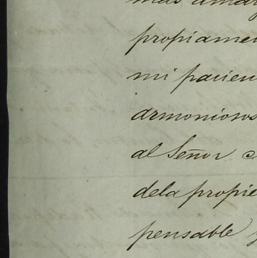 mas amar
propiamen
mi pacien
armoniosos
al Señor c
dela propie
pensable